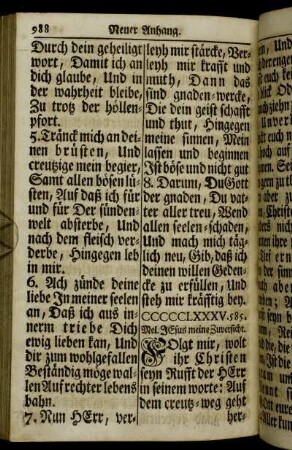 988 Neuer Anhang.
Durch dein geheiligt
wort, Damit ich an
dich glaube, Und in
der wahrheit bleibe,
Zu trotz der höllen-
pfort.
5. Tränck mich an dei-
nen brüsten, Und
creutzige mein begier,
Samt allen bösen lü-
sten, Auf daß ich für
und für Der sünden-
welt absterbe, Und
nach dem fleisch ver-
derbe, Hingegen leb
in mir.
6. Ach zünde deine
liebe In meiner seelen
an, Daß ich aus in-
nerm triebe Dich
ewig lieben kan, Und
dir zum wohlgefallen
Beständig möge wal-
len Auf rechter lebens
bahn.
7. Nun HErr, ver-
leyh mir stärcke, Ver-
leyh mir krafft und
muth, Dann das
sind gnaden-wercke,
Die dein geist schafft
und thut, Hingegen
meine sinnen, Mein
lassen und beginnen
Ist böse und nicht gut
8. Darum, Du Gott
der gnaden, Du vat-
ter aller treu, Wend
allen seelen-schaden,
Und mach mich täg-
lich neu, Gib, daß ich
deinen willen Geden-
cke zu erfüllen, Und
steh mir kräfftig bey.
CCCCCLXXXV. 585.
Mel. JEsus meine Zuversicht.
FOlgt mir, wolt
ihr Christen
seyn Rufft der HErr
in seinem worte: Auf
dem creutz-weg geht
her-